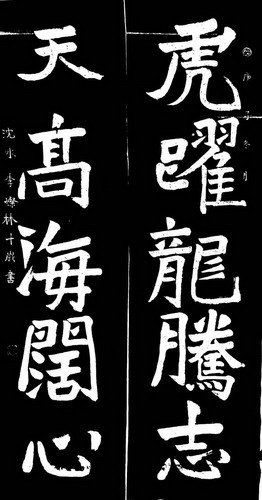 虎躍龍騰志
天高海闊心
沈水李燦林十歲書